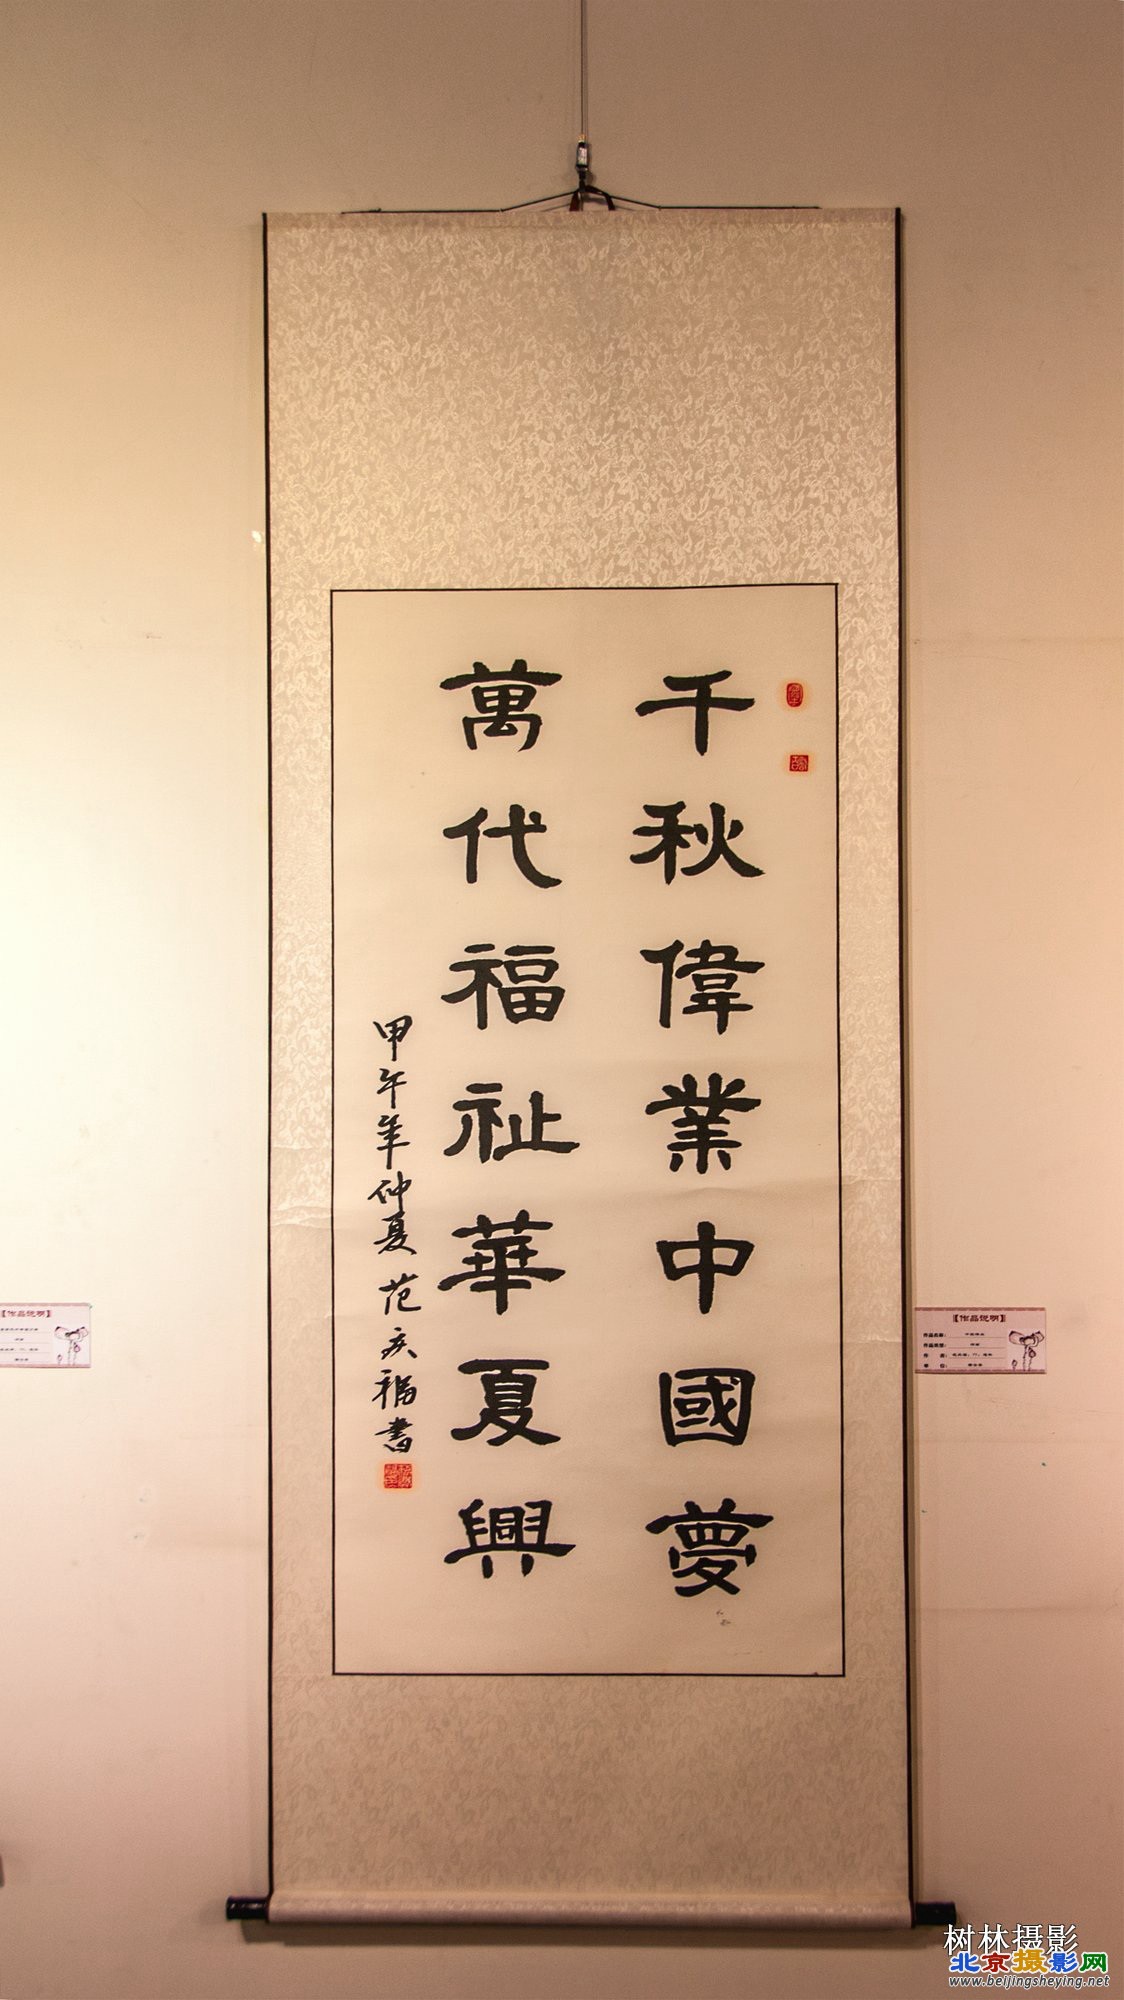 千秋偉業中國夢
萬代福祉華夏興
甲午年仲夏 范庆福書
【作品说明】
【作品说明】
作品名称：
作品类型：
作 者：
单 位：
树林摄影
北京摄影网
www.beijingsheying.net